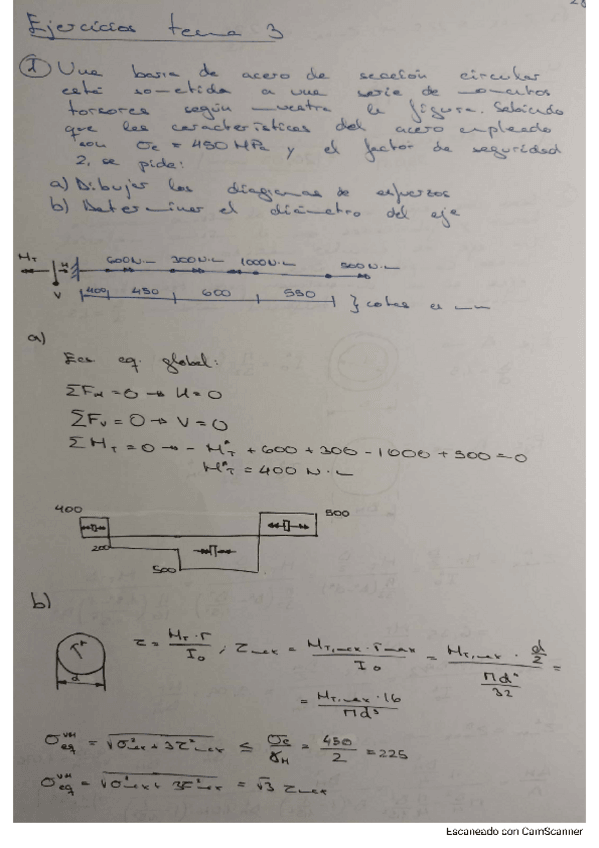 Ejercicios tema 3
① Una barra de acero de sección circular
está sometida a una serie de momentos
torsores según muestra la figura. Sabiendo
que las características del acero empleado
son σe = 450 MPa y el factor de seguridad
2, se pide:
a) Dibujar los diagramas de esfuerzos
b) Determinar el diámetro del eje
MT H 600N·m 300N·m 1000N·m 500N·m
V 400 450 600 550 } cotas en mm
a)
Ecs eq. global:
ΣFH = 0 → H = 0
ΣFV = 0 → V = 0
ΣMT = 0 → - MT^A + 600 + 300 - 1000 + 500 = 0
MT^A = 400 N·m
400 500
200
500
b)
r
d
τ = MT · r / I0 ; τmax = MT,max · rmax / I0 = MT,max · d/2 / (Πd⁴/32) =
= MT,max · 16 / Πd³
σeq^VM = √(σ²max + 3τ²max) ≤ σe/γM = 450/2 = 225
σeq^VM = √(σ²max + 3τ²max) = √3 τmax
Escaneado con CamScanner